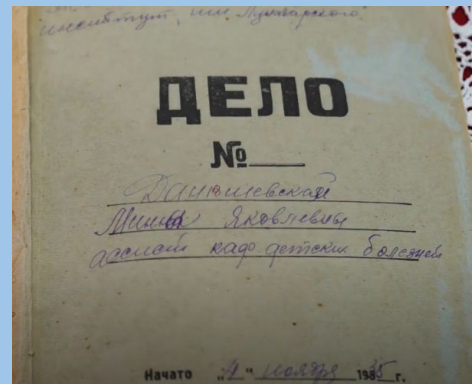 институт им Луначарского
ДЕЛО
№
Данилевской
Минны Яковлевны
ассист каф детских болезней
Начато "4" ноября 1935 г.